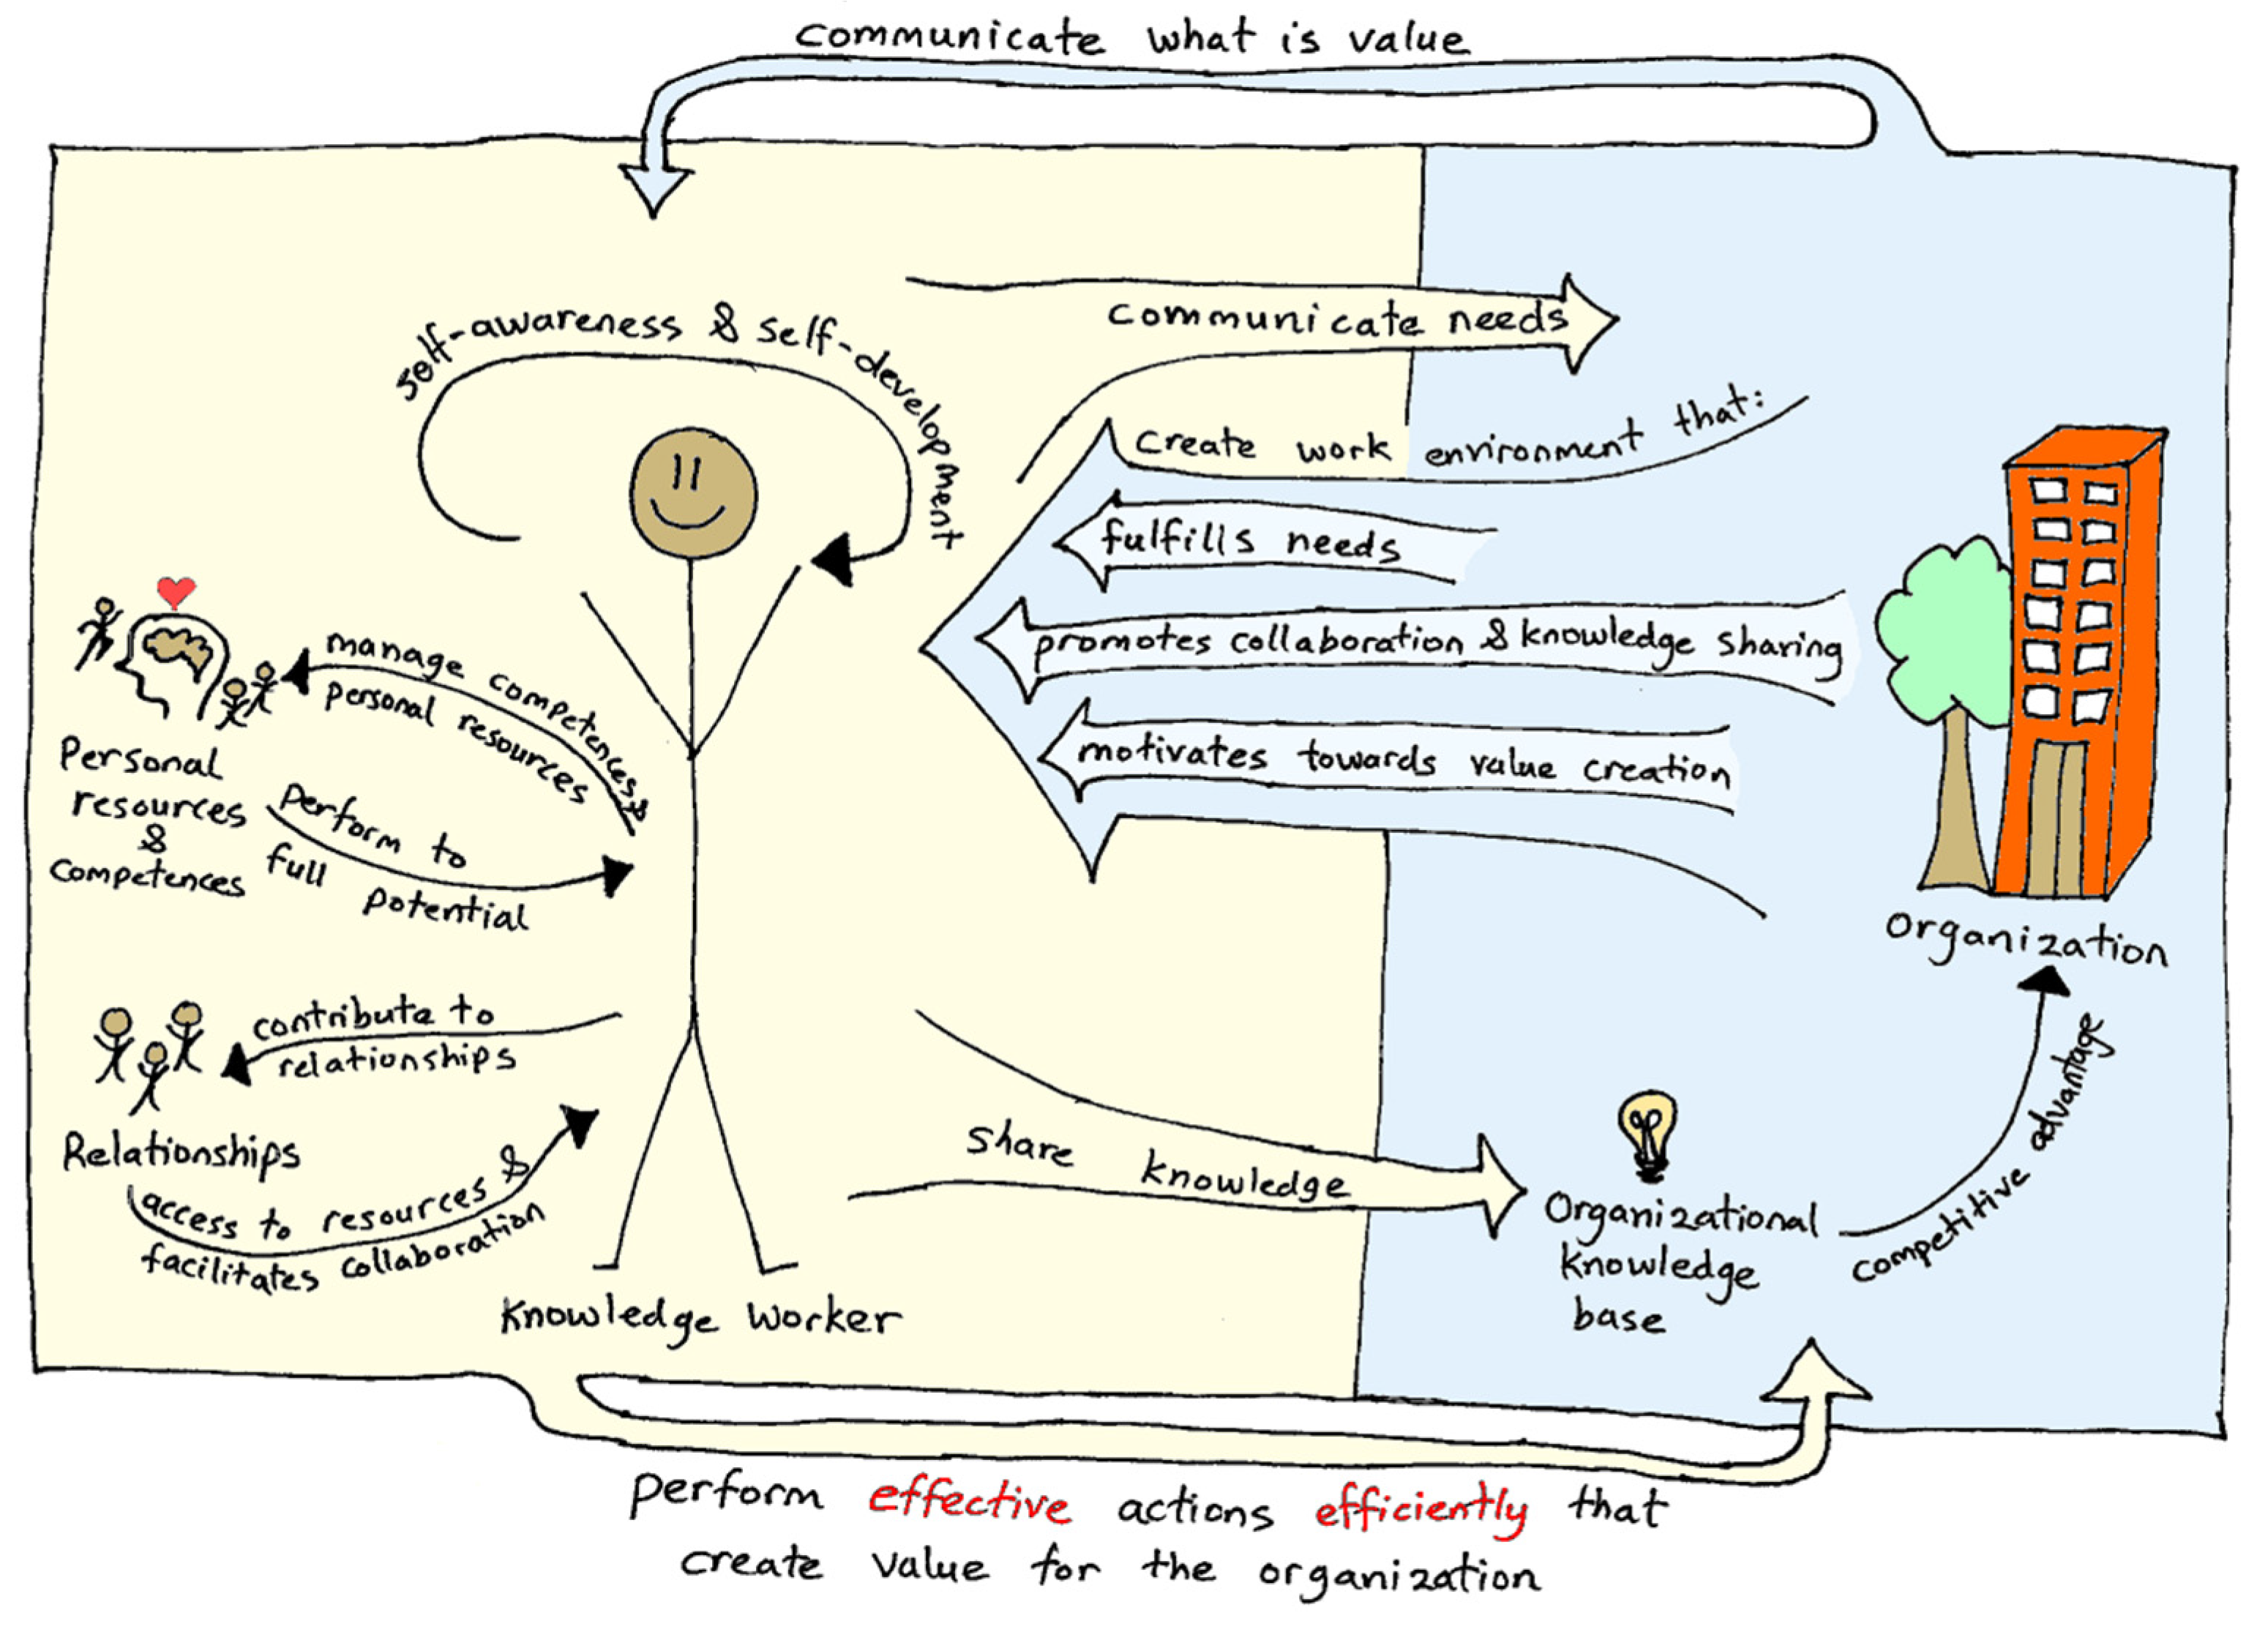 communicate what is value
self-awareness & self-development
communicate needs
Create work environment that:
fulfills needs
promotes collaboration & knowledge sharing
motivates towards value creation
manage competences &
personal resources
Personal
resources
&
Competences
perform to
full potential
Organization
contribute to
relationships
Relationships
access to resources &
facilitates collaboration
Share knowledge
Organizational
knowledge
base
competitive advantage
Knowledge Worker
Perform effective actions efficiently that
create value for the organization